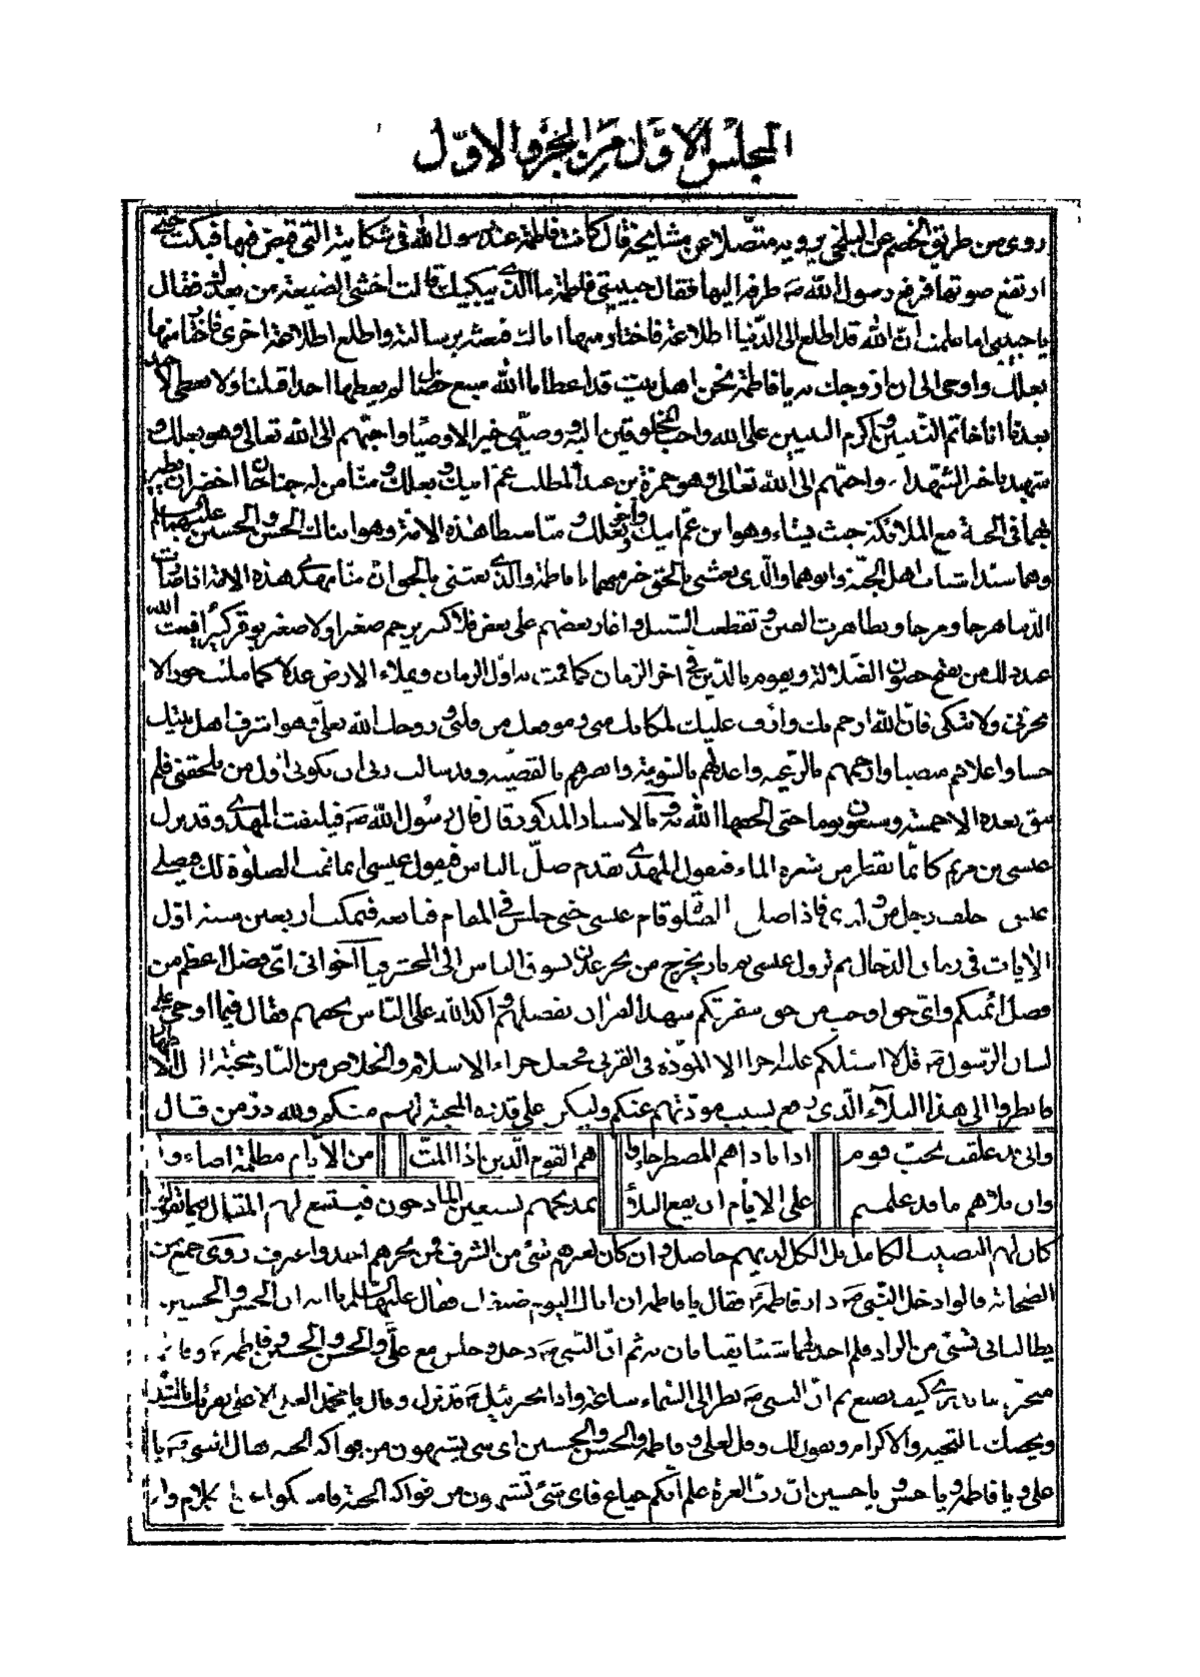 المجلس الاوّل من الجزء الاوّل
روى من طريق الخصم عن البلخي يرويه متصّلا عن مشايخه قال كانت فاطمة عند رسول الله في شكايته التي قبض فيها فبكت حتى
ارتفع صوتها فرفع رسول الله صه طرفه اليها فقال حبيبتي فاطمة ما الذي يبكيك قالت اخشى الضيعة من بعدك فقال
يا حبيبتي اما علمت انّ الله قد اطلع الى الدّنيا اطلاعة فاختار منها اباك فبعثه برسالته واطلع اطلاعة اخرى فاختار منها
بعلك واوحى الى ان ازوجك به يا فاطمة نحن اهل بيت قد اعطانا الله سبع خصال لم يعطها احدا قبلنا ولا يعطى احد
بعدنا انا خاتم النّبيين واكرم النبيين على الله واحب المخلوقين اليه ووصيّى خير الاوصيا واحبّهم الى الله تعالى وهو بعلك و
شهيدنا خير الشهداء واحبّهم الى الله تعالى وهو حمزة بن عبد المطلب عم ابيك وبعلك ومنّا من له جناحان اخضران يطير
بهما في الجنة مع الملائكة حيث يشاء وهو ابن عمّ ابيك واخو بعلك ومنّا سبطا هذه الامّة وهو ابناك الحسن والحسين عليهما السلام
وهما سيدا شباب اهل الجنّة وابوهما والّذى بعثنى بالحق خير منهما يا فاطمة والّذى بعثنى بالحق انّ منّا مهدى هذه الامة اذا صارت
الدّنيا هرجا ومرجا وتظاهرت الفتن وتقطعت السّبل واغار بعضهم على بعض فلا كبير يرحم صغيرا ولا صغير يوقر كبيرا فيبعث الله
عند ذلك من يفتح حصون الضّلالة ويقوم بالدّين في اخر الزمان كما قمت به اوّل الزمان ويملاء الارض عدلا كما ملئت جورا لا
تحزنى ولا تبكى فانّ الله ارحم بك وارءف عليك لمكانك منى وموقعك من قلبى وزوجك الله بعلك وهو اشرف اهل بيتك
حسبا واعلاهم منصبا وارحمهم بالرّعيه واعدلهم بالسّوية وابصرهم بالقضيّه وقد سالت ربى ان تكونى اوّل من يلحقنى فلم
تبق بعده الا خمسة وسبعون يوما حتى الحقها الله به وبالاسناد المذكور قال قال رسول الله صه فيلتفت المهدى وقد نزل
عيسى بن مريم كانّما يقطر من شعره الماء فيقول المهدى تقدم صلّ بالناس فيقول عيسى انما اقيمت الصلوة لك فيصلى
عيسى خلف رجل من ولدى فاذا صلى الصّلوة قام عيسى حتى جلس في المقام فبايعه فيمكث اربعين سنة اوّل
الايات في زمانه الدّجال ثم نزول عيسى ثم نار تخرج من بحر عدن تسوق الناس الى المحشر فيا اخوانى اىّ فضل اعظم من
فضل ائمتكم واىّ حق اوجب من حق سفرتكم شهد القران بفضلهم واكد الله على النّاس بحقهم فقال فيما اوحى على
لسان الرّسول صه قل لا اسئلكم عليه اجرا الا المودّة في القربى فجعل جزاء الاسلام والخلاص من النّار محبّة
فانظروا الى هذا البلاء الّذى دفع بسبب مودّتهم عنكم وليكن على قدره المحبة لهم منكم ولله درّ من قال
وانى قد علقت بحبّ قوم
اذا ناداهم المضطر جاؤا
هم القوم الّذين اذا المّت
من الايّام مظلمة اضاءوا
على الايام ان يقع البلاء
بمدحهم يستعين المادحون فيتسع لهم المقال
كان لهم النصيب الكامل بل الكل لديهم حاصل وان كان لغيرهم شئ من الشرف فمن بحرهم اخذ واغترف روى جمع من
الصّحابة قالوا دخل النّبي صه دار فاطمة فقال يا فاطمة ان اباك اليوم ضيفك فقالت عليها السلام يا ابه ان الحسن والحسين
يطالبانى بشئ من الزاد فلم اجد لهما شيئا يقتاتان به ثم انّ النّبي صه دخل وجلس مع علىّ والحسن والحسين وفاطمة
متحيّرة ما تدرى كيف تصنع ثم انّ النبى صه نظر الى السّماء ساعة واذا بجبرئيل قد نزل وقال يا محمّد العلى الاعلى يقرئك السّلام
ويخصك بالتحيه والاكرام ويقول لك قل لعلى وفاطمة والحسن والحسين اى شئ يشتهون من فواكه الجنه فقال النبي صه يا
على ويا فاطمة ويا حسن ويا حسين انّ ربّ العزة علم انّكم جياع فاىّ شئ تشتهون من فواكه الجنة فامسكوا عن الكلام